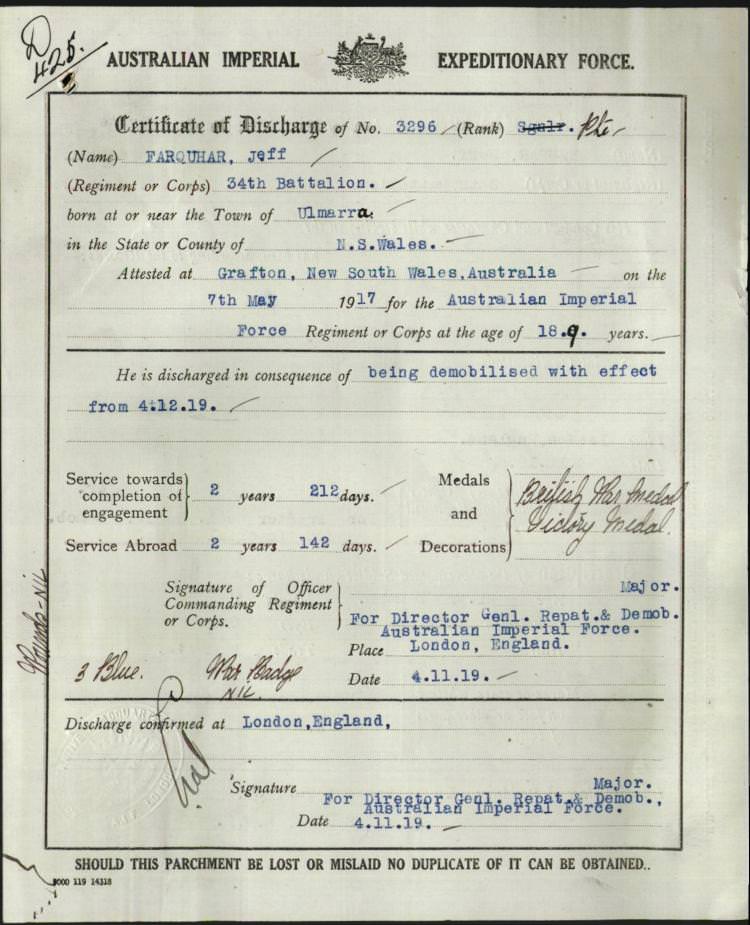 D
425.
AUSTRALIAN IMPERIAL EXPEDITIONARY FORCE.
Certificate of Discharge of No. 3296 (Rank) Sgnlr. Pte
(Name) FARQUHAR, Jeff
(Regiment or Corps) 34th Battalion.
born at or near the Town of Ulmarra
in the State or County of N.S.Wales.
Attested at Grafton, New South Wales, Australia on the
7th May 1917 for the Australian Imperial
Force Regiment or Corps at the age of 18.9. years.
He is discharged in consequence of being demobilised with effect
from 4.12.19.
Service towards completion of engagement } 2 years 212 days.
Medals and Decorations } British War Medal
Victory Medal.
Service Abroad 2 years 142 days.
Wounds-NIL
Signature of Officer Commanding Regiment or Corps. } Major.
For Director Genl. Repat.& Demob.
Australian Imperial Force.
Place London, England.
3 Blue. War Badge
NIL.
Date 4.11.19.
Discharge confirmed at London,England,
Signature Major.
For Director Genl. Repat.& Demob.,
Australian Imperial Force.
Date 4.11.19.
SHOULD THIS PARCHMENT BE LOST OR MISLAID NO DUPLICATE OF IT CAN BE OBTAINED..
5000 119 14318